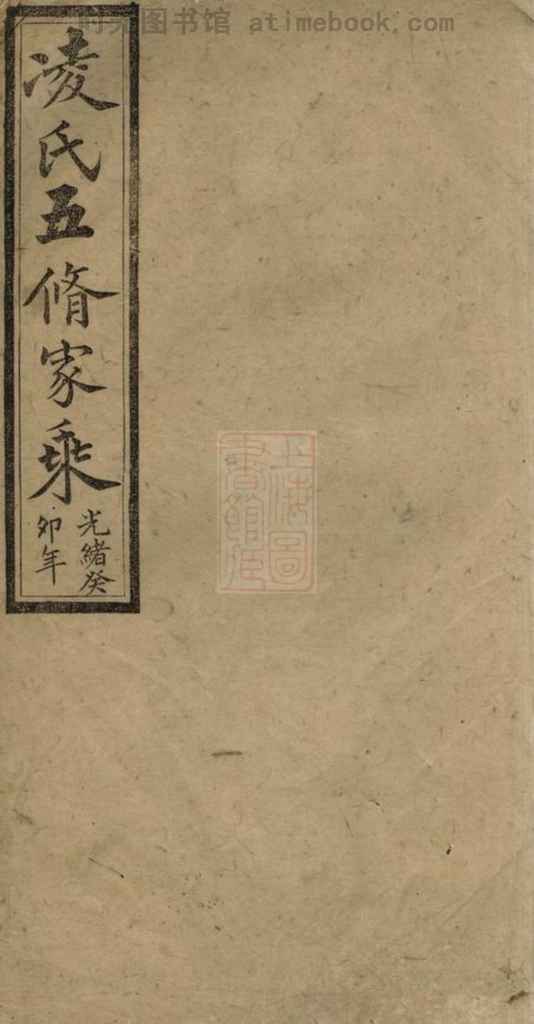 时来图书馆 atimebook.com
凌氏五脩家乘
光緒癸
卯年
上海圖
書館藏